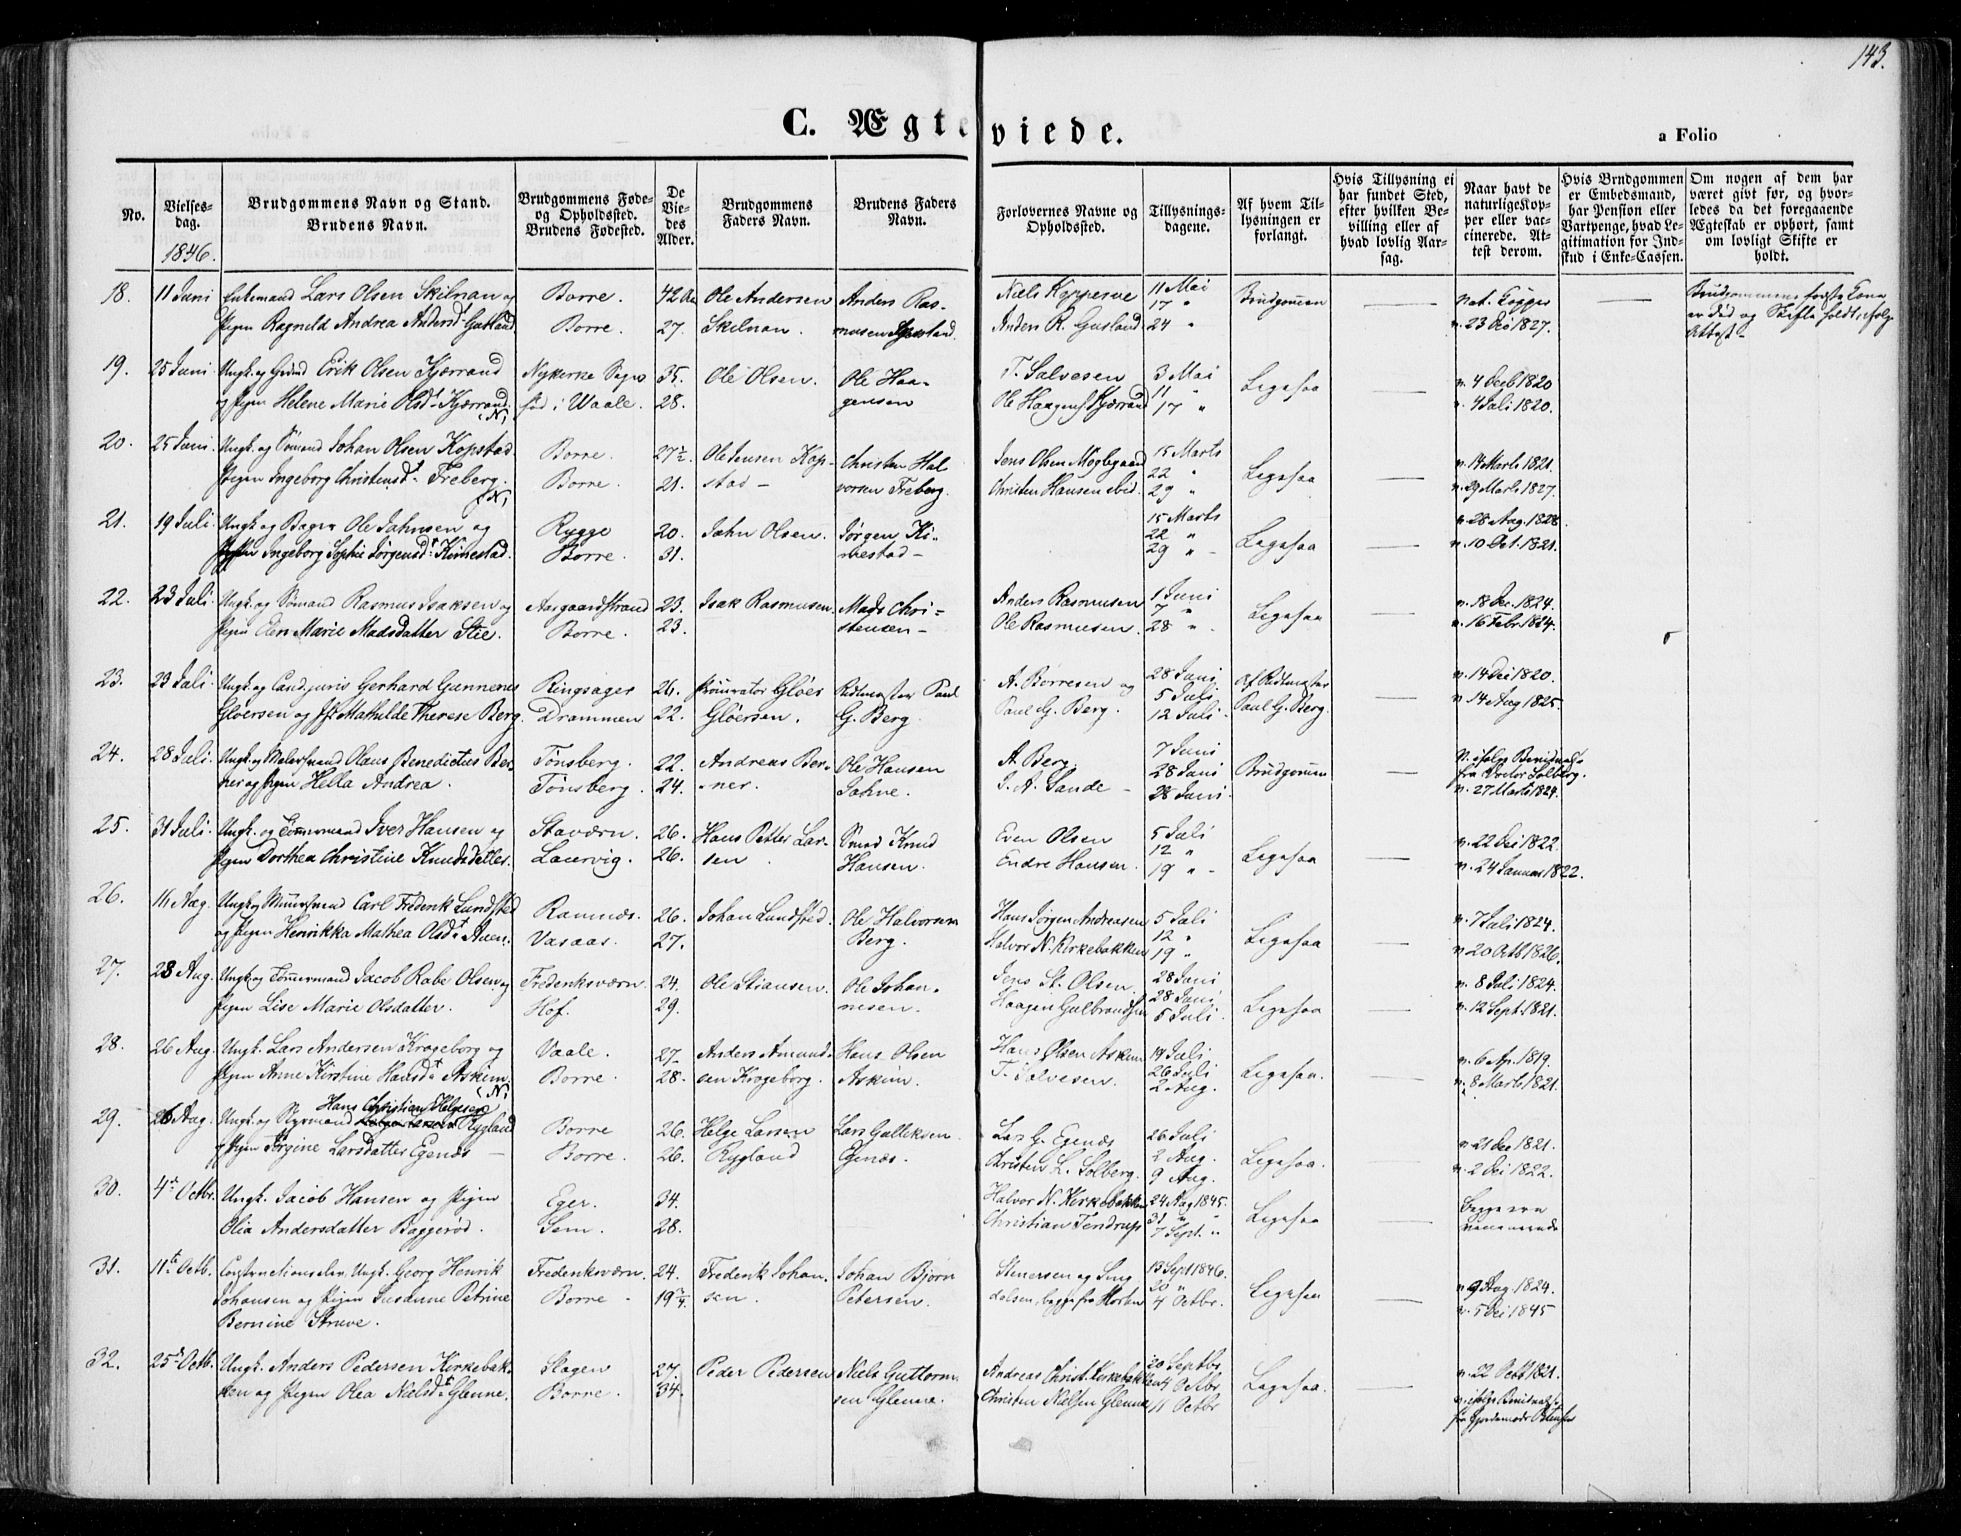 143.
C. Ægteviede.
a Folio
No.
Vielses-
dag.
1846.
Brudgommens Navn og Stand.
Brudens Navn.
Brudgommens Føde-
og Opholdssted.
Brudens Fødested.
De
Vie-
des
Alder.
Brudgommens
Faders Navn.
Brudens Faders
Navn.
Forlovernes Navne og
Opholdssted.
Tillysnings-
dagene.
Af hvem Til-
lysningen er
forlangt.
Hvis Tillysning ei
har fundet Sted,
efter hvilken Be-
villing eller af
hvad lovlig Aar-
sag.
Naar havt de
naturlige Kop-
per eller vac-
cinerede. At-
test derom.
Hvis Brudgommen
er Embedsmand,
har Pension eller
Vartpenge, hvad Le-
gitimation for Ind-
skud i Enke-Cassen.
Om nogen af dem har
været givt før, og hvor-
ledes da det foregaaende
Ægteskab er ophørt, samt
om lovligt Skifte er
holdt.
18. 11 Juni Enkemand Lars Olsen Skilnan og Borre. 42 Ole Andersen Anders Ras- 11 Mai Brudgommen nat. Kopper
Pigen Ragnild Andrea Andersd. Gusland Borre. 27. Skilnan. musen 17 " Anders R. Gusland 24 " v. 23 1827.
19. 25 Juni Ungk. og Erik Olsen Kjærrand Nykerke 35. Ole Olsen. Ole Haa- T. Salvesen 3 Mai Ligesaa v. 4 1820
og Pigen Helene Marie Olsd. Kjærrand i Vaale. 28. gensen Ole Haagens. Kjærrand 11 " 17 " v. 4 Juli 1820.
20. 25 Juni Ungk. og Sømand Johan Olsen Kopstad Borre. 27½ Ole Jensen Kop- Christen Hal Jens Olsen 15 Marts Ligesaa v. 14 Marts 1821.
Pigen Ingeborg Christensd. Freberg. Borre. 21. stad - vorsen Freberg. Christen Hansen ibid. 22 " 29 " v. 29 Marts 1827.
21. 19 Juli Ungk. og Bager Ole Jahnsen og Rygge 20. Jahn Olsen. Jørgen Ki- 15 Marts 22 " Ligesaa v. 28 Aug. 1828.
Ingeborg Sophie Jørgensd. Borre. 31. bestad - 29 " v. 10 Oct. 1821.
22. 23 Juli Ungk. og Sømand Rasmus Isaksen og Aasgaardstrand 23. Isak Rasmusen. Mads Chri- Anders Rasmusen 1 Juni Ligesaa v. 18 Dec. 1824.
Pigen Elen Marie Madsdatter Stie. Borre. 23. stensen - Ole Rasmusen. 7 " 28 " v. 16 Febr. 1824.
23. 23 Juli Ungk. og Cand. juris Gerhard Gunnenes Ringsager 26. Gløer Ridtmester Paul A. Borresen og 28 Juni Af Ridtmester v. 14 1820.
Gløersen og Mathilde Therese Berg Drammen 22. Gløersen. G. Berg. Paul G. Berg. 5 Juli 12 Juli Paul G. Berg. v. 14 Aug 1825.
24. 28 Juli Ungk. og Olaus Benedictus Ber- Tønsberg. 22. Andreas Ber- Ole Hansen A. Berg. 7 Juni 28 Juni Brudgommen v. ifølge
ner og Pigen Hella Andrea. Tønsberg. 24. ner. J. A. Sande - 28 Juni. fra Doctor Solberg. v. 27 Marts 1824.
25. 31 Juli Ungk. og Tømmermand Iver Hansen og Staværn. 26. Hans Petter Lar- Knud Even Olsen 5 Juli Ligesaa v. 22 1822.
Pigen Dorthea Christine Knudsdatter. Laurvig. 26. sen Hansen. Endre Hansen. 12 " 19 " v. 24 Januar 1822.
26. 16 Aug. Ungk. og Carl Frederik Lundsted Ramnæs. 26. Johan Lundsted. Ole Halvorsen Hans Jørgen Andreasen 5 Juli Ligesaa v. 7 Juli 1824.
og Pigen Henrikka Mathea Olsd. Vasaas. 27. Berg. Halvor N. Kirkebakken 12 " 19 " v. 20 Octb 1826.
27. 23 Aug. Ungk. og Tømmermand Jacob Rabe Olsen og Frederiksværn. 24. Ole Stiansen. Ole Johan- Jens St. Olsen. 28 Juni Ligesaa v. 8 Juli 1824.
Pigen Lise Marie Olsdatter. Hof. 29. nesen. Haagen Gulbrandsen 28 Juni 5 Juli v. 12 Sept. 1821.
28. 26 Aug. Ungk. Lars Andersen Krogeborg og Vaale. 27 Anders Amund- Hans Olsen Hans Olsen Askim 19 Juli Ligesaa. v. 6 Ap. 1819.
Pigen Anne Kirstine Hansd. Askim. Borre. 28. sen Krogeborg. Askim. T. Salvesen. 26 Juli 2 Aug. v. 8 Marts 1821.
Hans Christian Helgesen
29. 26 Aug. Ungk. og Styrmand Rygland Borre 26. Helge Larsen Lars Gulliksen Lars G. Egenæs 26 Juli Ligesaa. v. 21 Dec 1821.
og Pigen Jørgine Larsdatter Egenæs - Borre. 26. Rygland Egenæs. Christen L. Solberg. 2 Aug. 9 Aug. v. 2 1822.
30. 4de Octbr. Ungk. Jacob Hansen og Pigen Eger. 34. Halvor N. Kirkebakken 24 Aug 1845. Ligesaa Begge ere
Olia Andersdatter Baggerød. Sem. 28. Christian Tendrup 31 " 7 Sept. " vaccinerede
31. 11te Octb. Ungk. Georg Henrik Frederiksværn. 24. Frederik Johan- Johan Bjørn Stenersen og 13 Sept 1846. Ligesaa v. 9 Aug. 1824.
Johansen og Pigen Susanne Petrine Borre - 19¾. sen. Petersen. begge fra Horten 20 " 4 Octbr. v. 5 1845
Bernine Struve.
32. 25de Octb. Ungk. Anders Pedersen Kirkebak- Slagen 27. Peder Pedersen Niels Guttorm- Andreas Christ. Kirkebakken 20 Septbr Ligesaa. v. 22 Octb 1821.
ken og Pigen Olea Nielsd. Glenne. Borre. 34. sen Glenne. Christen Nielsen Glenne 4 Octbr 11 Octbr v. ifølge